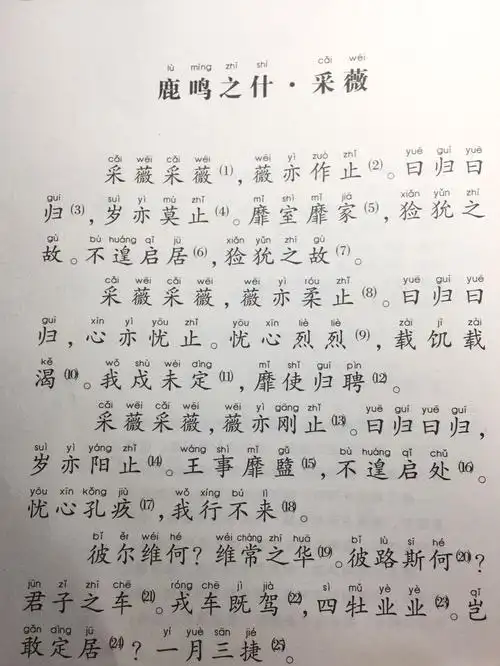 lù míng zhī shí cǎi wēi
鹿鸣之什·采薇
cǎi wēi cǎi wēi wēi yì zuò zhǐ yuē guī yuē
采薇采薇⑴,薇亦作止⑵。曰归曰
guī suì yì mù zhǐ mǐ shì mǐ jiā xiǎn yǔn zhī
归⑶,岁亦莫止⑷。靡室靡家⑸,猃狁之
gù bù huáng qǐ jū xiǎn yǔn zhī gù
故。不遑启居⑹,猃狁之故⑺。
cǎi wēi cǎi wēi wēi yì róu zhǐ yuē guī yuē
采薇采薇,薇亦柔止⑻。曰归曰
guī xīn yì yōu zhǐ yōu xīn liè liè zài jī zài
归,心亦忧止。忧心烈烈⑼,载饥载
kě wǒ shù wèi dìng mǐ shǐ guī pìn
渴⑽。我戍未定⑾,靡使归聘⑿。
cǎi wēi cǎi wēi wēi yì gāng zhǐ yuē guī yuē guī
采薇采薇,薇亦刚止⒀。曰归曰归,
suì yì yáng zhǐ wáng shì mǐ gǔ bù huáng qǐ chǔ
岁亦阳止⒁。王事靡盬⒂,不遑启处⒃。
yōu xīn kǒng jiù wǒ xíng bù lì
忧心孔疚⒄,我行不来⒅。
bǐ ěr wéi hé wéi cháng zhī huā bǐ lù sī hé
彼尔维何?维常之华⒆。彼路斯何⒇?
jūn zǐ zhī chē róng chē jì jià sì mǔ yè yè qǐ
君子之车㉑。戎车既驾㉒,四牡业业㉓。岂
gǎn dìng jū yí yuè sān jié
敢定居㉔?一月三捷㉕。